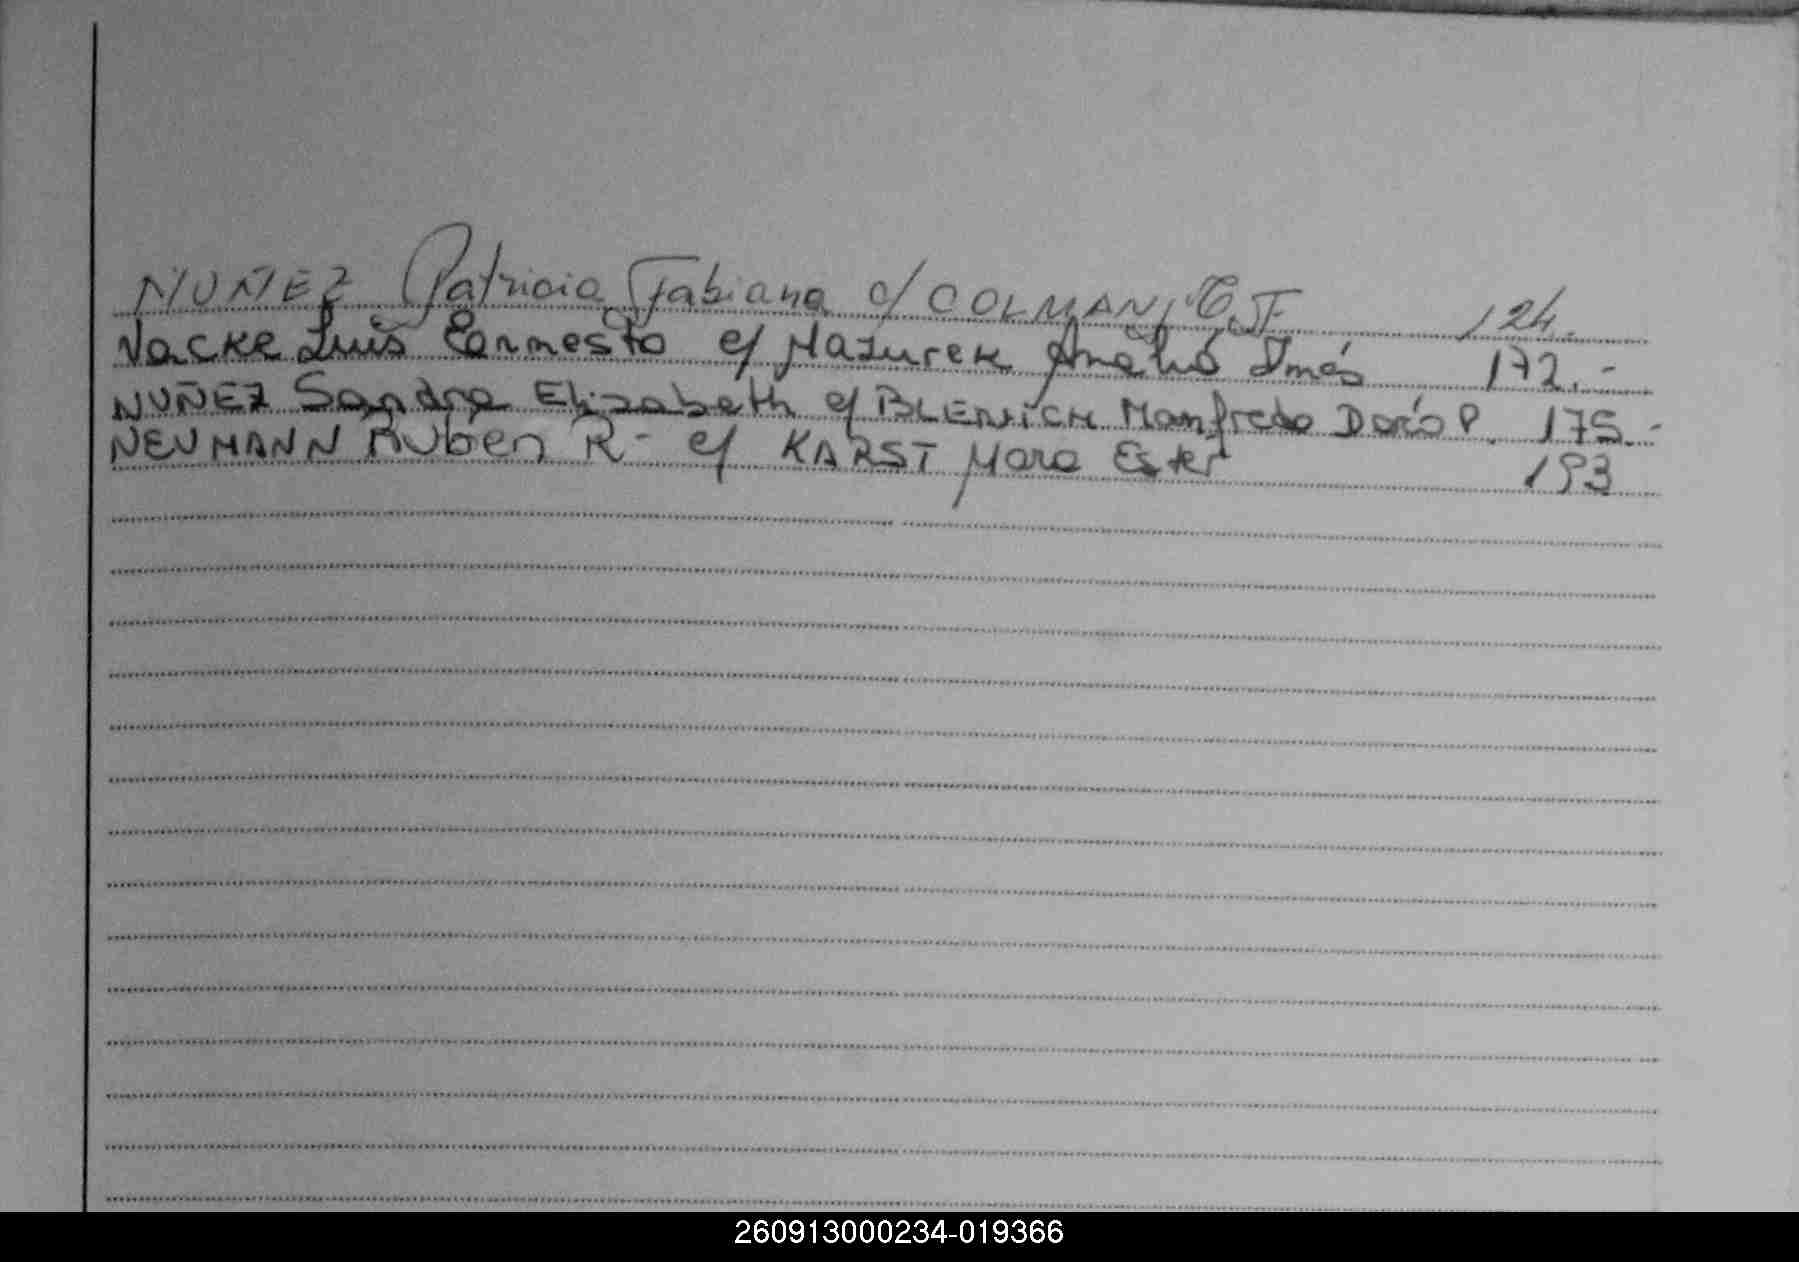 NUÑEZ Patricia Fabiana c/ COLMAN, C.F. 124.-
Nacke Luis Ernesto c/ Mazurek Inés 172.-
NUÑEZ Sandra Elizabeth c/ BLENICH Manfredo Darío P. 175.-
NEUMANN Rubén R- c/ KARST Mara Ester 193
260913000234-019366